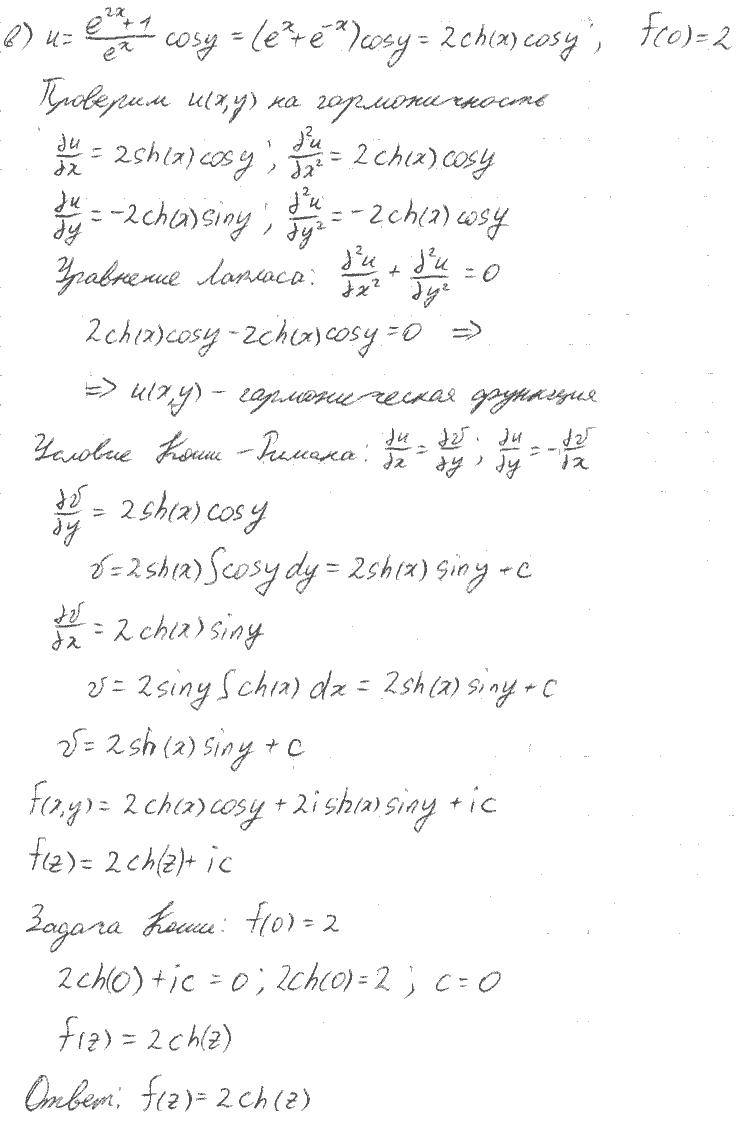 в) u = \frac{e^{2x}+1}{e^x} cosy = (e^x + e^{-x})cosy = 2ch(x)cosy ; f(0)=2
Проверим u(x,y) на гармоничность
\frac{∂u}{∂x} = 2sh(x)cosy ; \frac{∂²u}{∂x²} = 2ch(x)cosy
\frac{∂u}{∂y} = -2ch(x)siny ; \frac{∂²u}{∂y²} = -2ch(x)cosy
Уравнение Лапласа: \frac{∂²u}{∂x²} + \frac{∂²u}{∂y²} = 0
2ch(x)cosy - 2ch(x)cosy = 0 ⇒
⇒ u(x,y) - гармоническая функция
Условие Коши - Римана: \frac{∂u}{∂x} = \frac{∂v}{∂y} ; \frac{∂u}{∂y} = -\frac{∂v}{∂x}
\frac{∂v}{∂y} = 2sh(x)cosy
v = 2sh(x)∫cosy dy = 2sh(x)siny + c
\frac{∂v}{∂x} = 2ch(x)siny
v = 2siny∫ch(x)dx = 2sh(x)siny + c
v = 2sh(x)siny + c
f(x,y) = 2ch(x)cosy + 2ish(x)siny + ic
f(z) = 2ch(z) + ic
Задача Коши: f(0) = 2
2ch(0) + ic = 0 ; 2ch(0) = 2 ; c = 0
f(z) = 2ch(z)
Ответ: f(z) = 2ch(z)